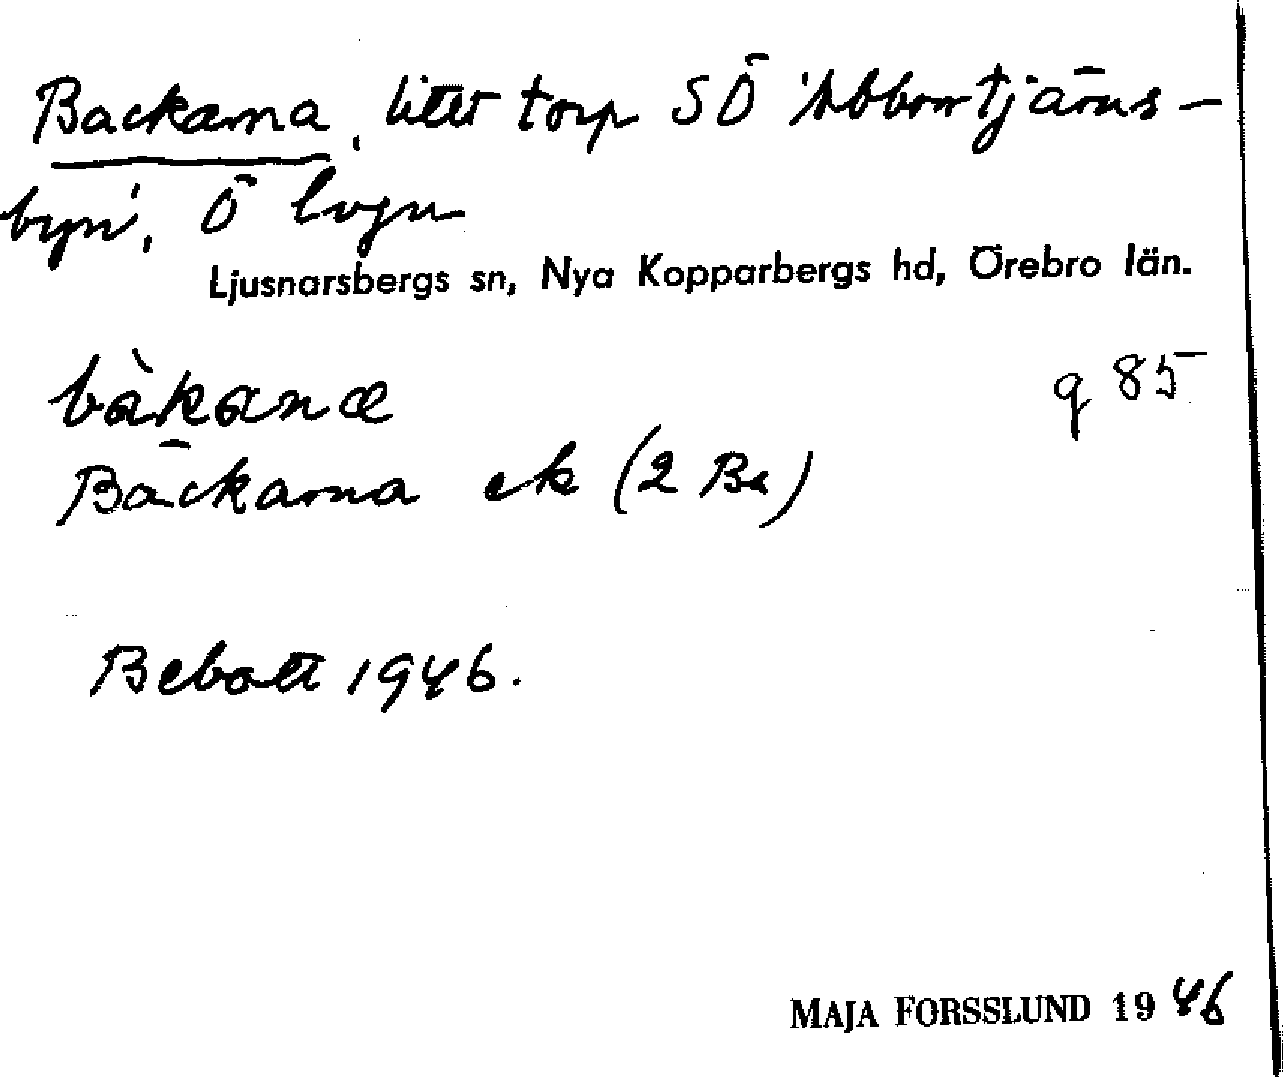 Backarna, litet torp SÖ 'Abborrtjärns-
byn', Ö lvgn
Ljusnarsbergs sn, Nya Kopparbergs hd, Örebro län.
bàkanæ q 85
Bäckarna ek (2 Ba)
Bebott 1946.
MAJA FORSSLUND 1946